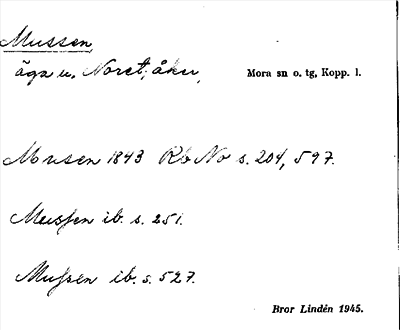 Mussen,
äga u. Noret; åker,
Mora sn o. tg, Kopp. l.
Musen 1843 Rb No s. 204, 597.
Mussen ib. s. 251.
Mussen ib. s. 527.
Bror Lindén 1945.